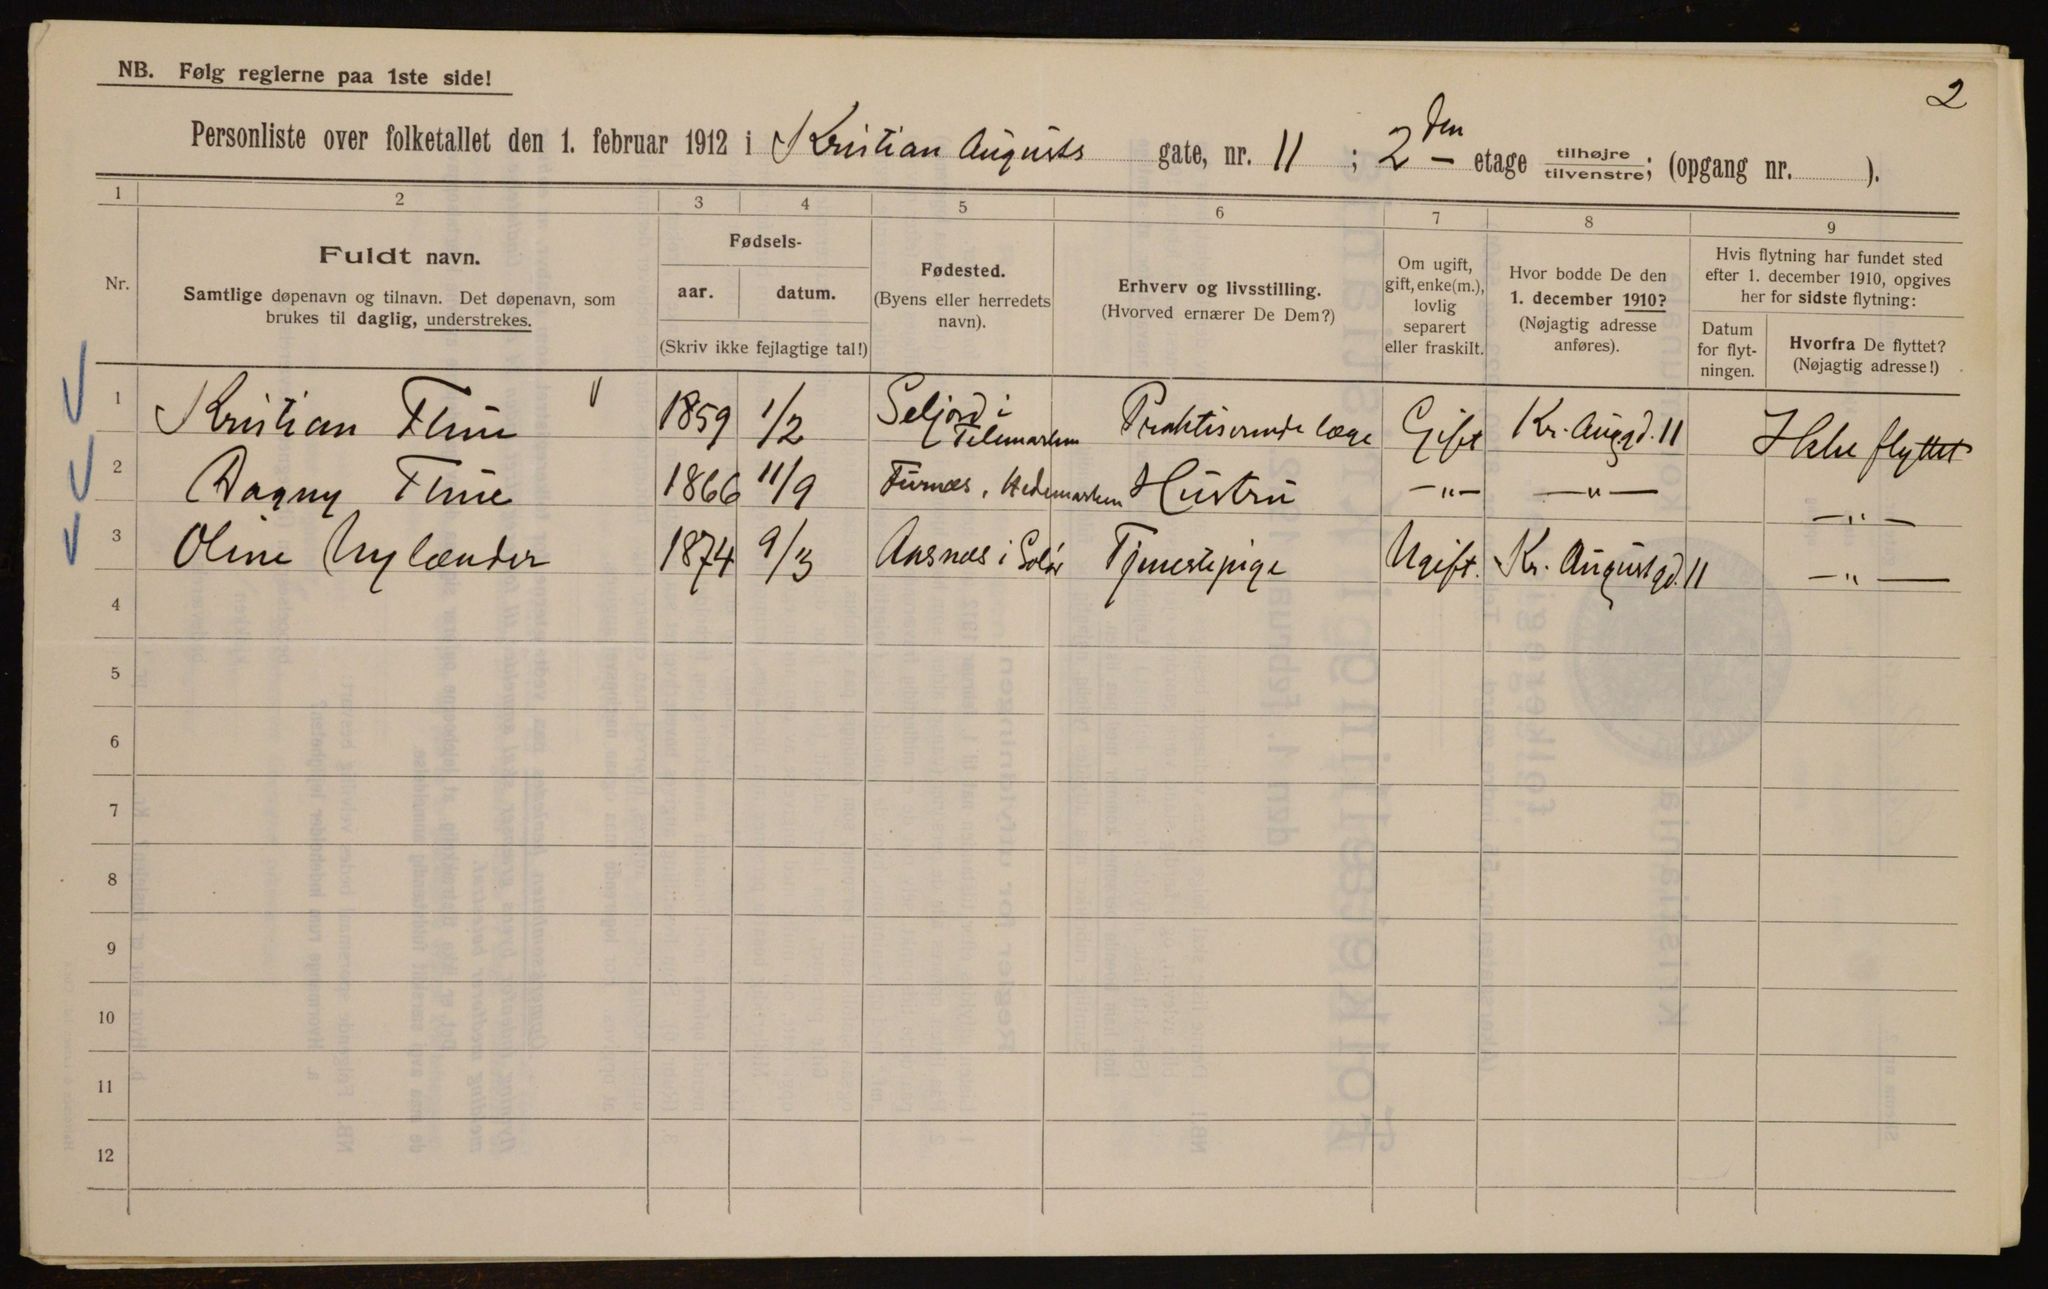 2
NB. Følg reglerne paa 1ste side!
Personliste over folketallet den 1. februar 1912 i Kristian Augusts gate, nr. 11 ; 2den etage tilhøjre/tilvenstre; (opgang nr. ).
1 2 3 4 5 6 7 8 9
Nr.
Fuldt navn.
Samtlige døpenavn og tilnavn. Det døpenavn, som
brukes til daglig, understrekes.
Fødsels-
aar. datum.
(Skriv ikke fejlagtige tal!)
Fødested.
(Byens eller herredets
navn).
Erhverv og livsstilling.
(Hvorved ernærer De Dem?)
Om ugift,
gift, enke(m.),
lovlig
separert
eller fraskilt.
Hvor bodde De den
1. december 1910?
(Nøjagtig adresse
anføres).
Hvis flytning har fundet sted
efter 1. december 1910, opgives
her for sidste flytning:
Datum
for flyt-
ningen.
Hvorfra De flyttet?
(Nøjagtig adresse!)
1 Kristian 1859 1/2 Seljord i Telemarken Praktiserende læge Gift Kr. Auggd. 11 Ikke flyttet
2 Dagny 1866 11/9 Furnæs, Hedemarken Hustru —"— —"— —"—
3 Oline Nylænder 1874 9/3 Aasnæs i Solør Tjenestepige Ugift. Kr. Augustgd. 11 —"—
4
5
6
7
8
9
10
11
12